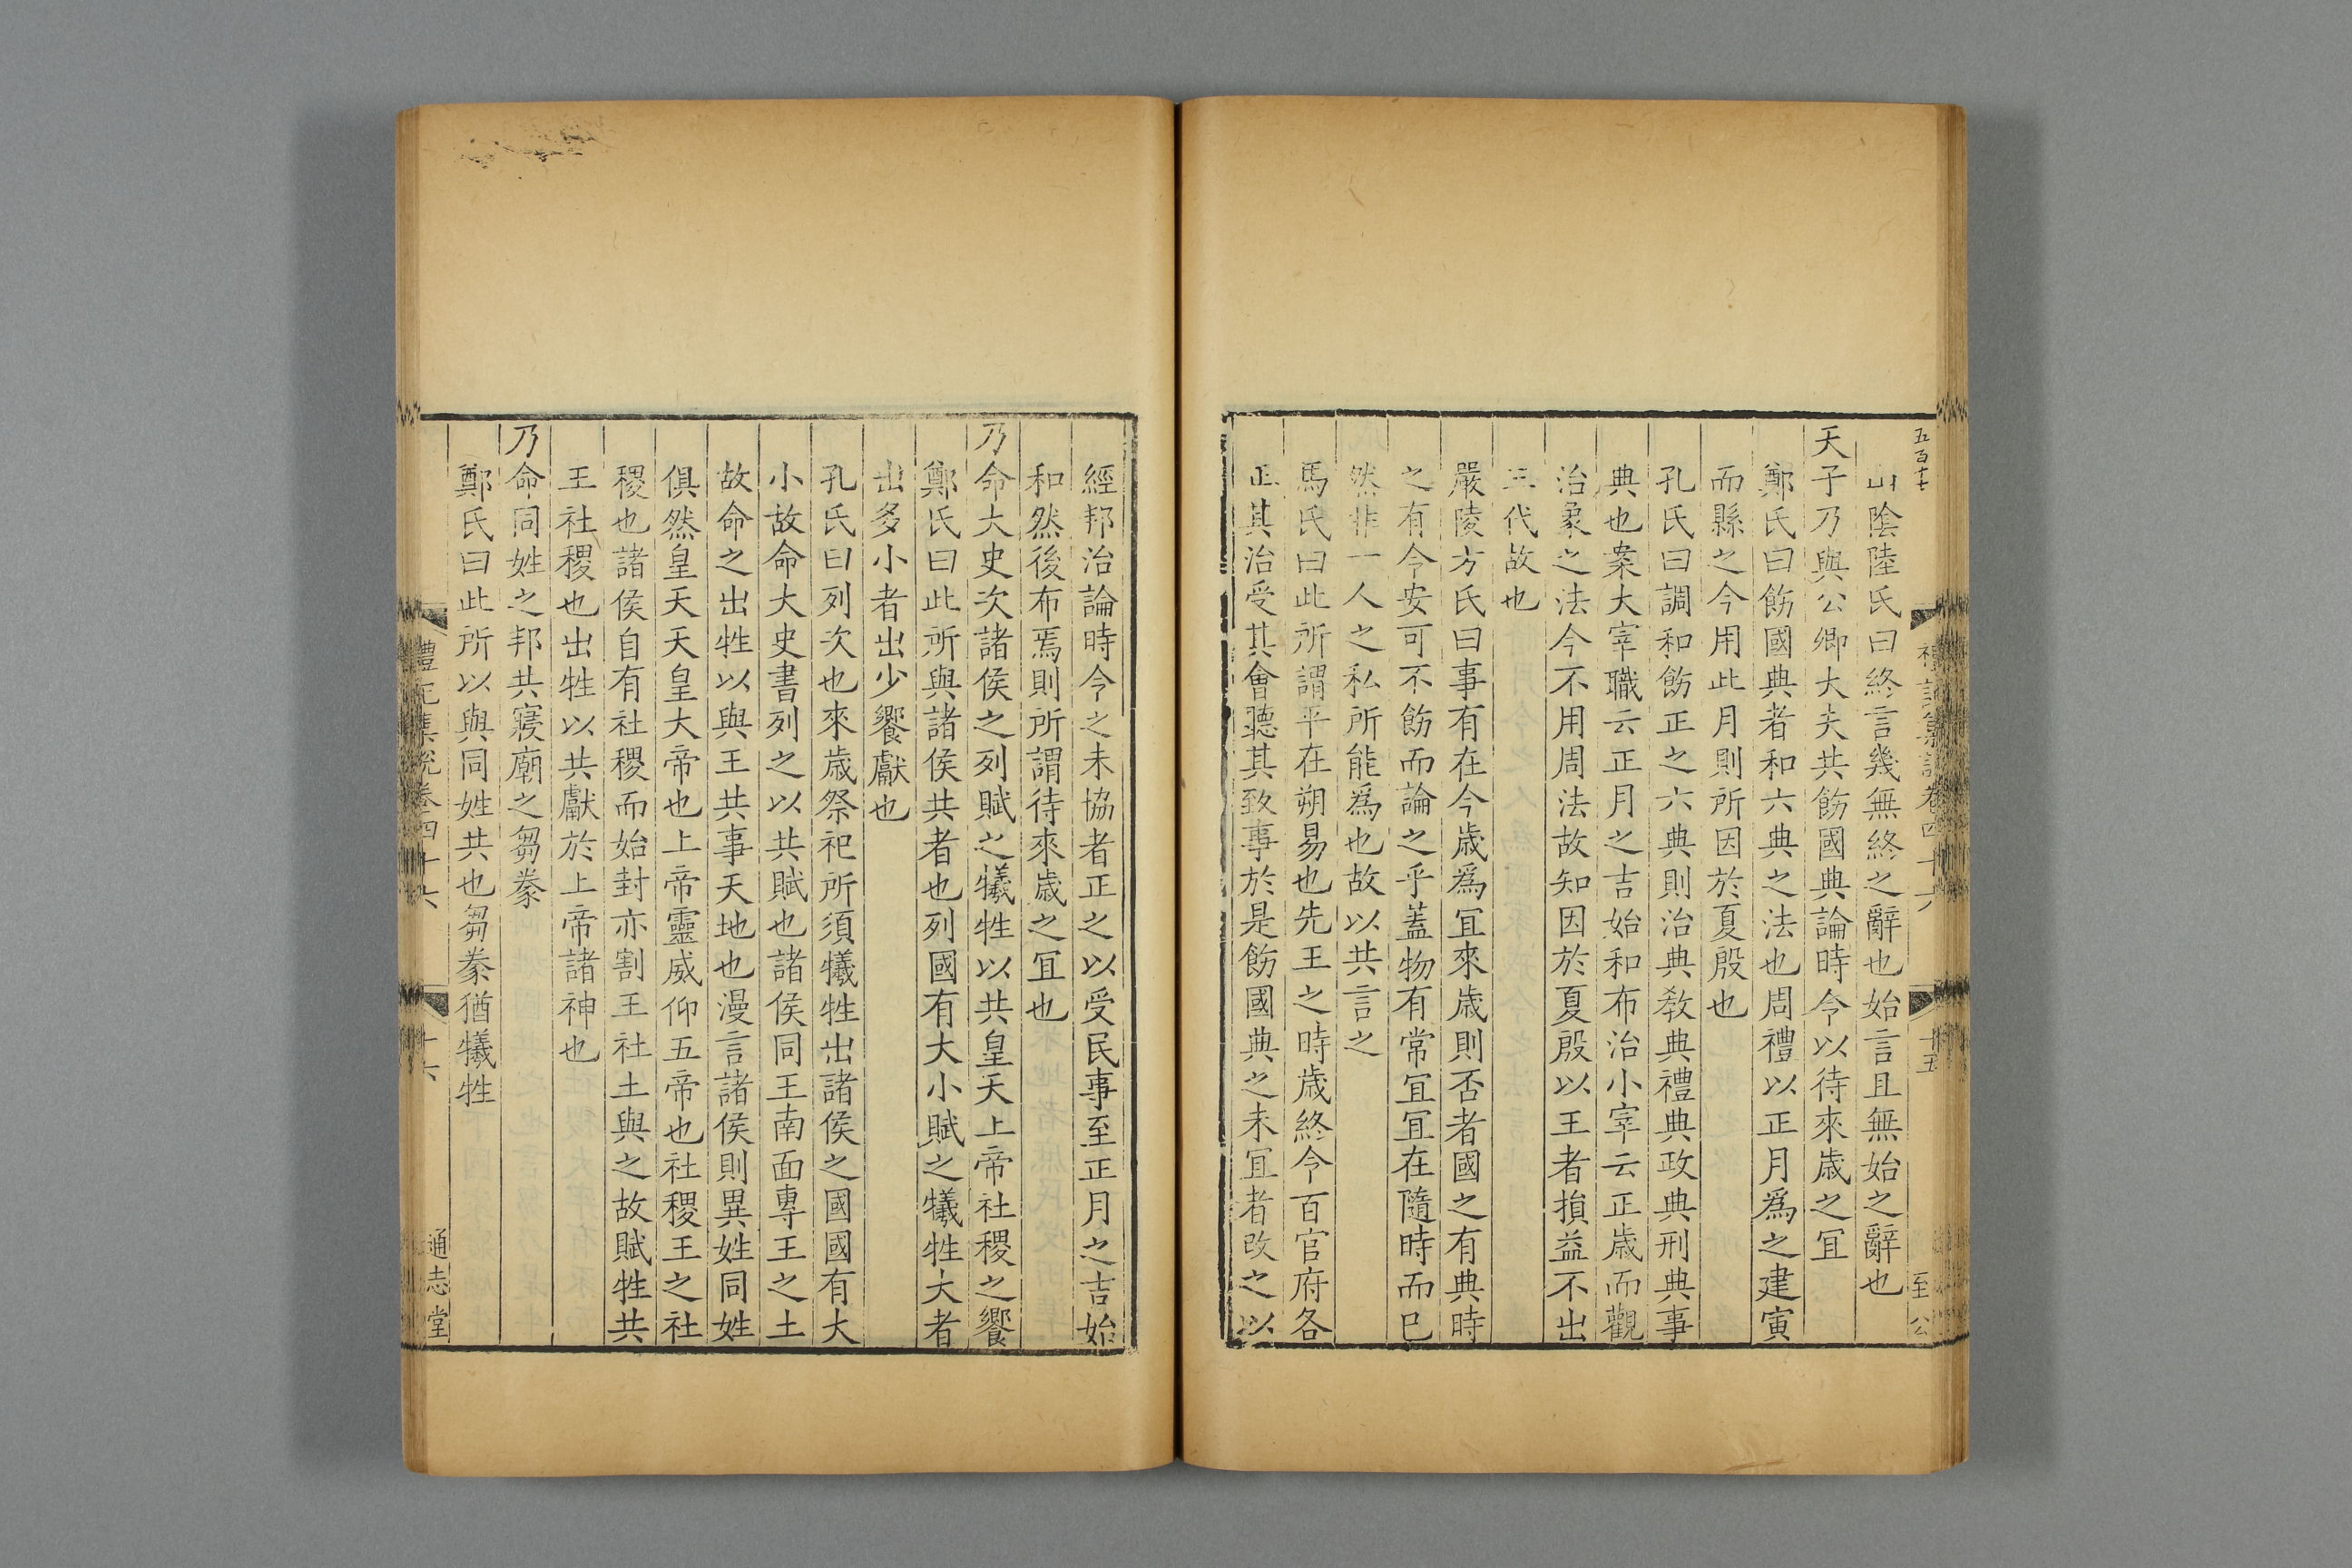 五百十七
禮記集說卷四十六
十五
至公
山陰陸氏曰終言幾無終之辭也始言且無始之辭也
天子乃與公卿大夫共飭國典論時令以待來歲之冝
鄭氏曰飭國典者和六典之法也周禮以正月爲之建寅
而縣之今用此月則所因於夏殷也
孔氏曰調和飭正之六典則治典敎典禮典政典刑典事
典也案大宰職云正月之吉始和布治小宰云正歲而觀
治象之法今不用周法故知因於夏殷以王者損益不出
三代故也
嚴陵方氏曰事有在今歲爲冝來歲則否者國之有典時
之有令安可不飭而論之乎蓋物有常冝冝在隨時而已
然非一人之私所能爲也故以共言之
馬氏曰此所謂平在朔易也先王之時歲終令百官府各
正其治受其會聽其致事於是飭國典之未冝者改之以
經邦治論時令之未協者正之以受民事至正月之吉始
和然後布焉則所謂待來歲之冝也
乃命大史次諸侯之列賦之犧牲以共皇天上帝社稷之饗
鄭氏曰此所與諸侯共者也列國有大小賦之犧牲大者
出多小者出少饗獻也
孔氏曰列次也來歲祭祀所須犧牲出諸侯之國國有大
小故命大史書列之以共賦也諸侯同王南面專王之土
故命之出牲以與王共事天地也漫言諸侯則異姓同姓
俱然皇天天皇大帝也上帝靈威仰五帝也社稷王之社
稷也諸侯自有社稷而始封亦割王社土與之故賦牲共
王社稷也出牲以共獻於上帝諸神也
乃命同姓之邦共寢廟之芻豢
鄭氏曰此所以與同姓共也芻豢猶犧牲
禮記集說卷四十六
十六
通志堂